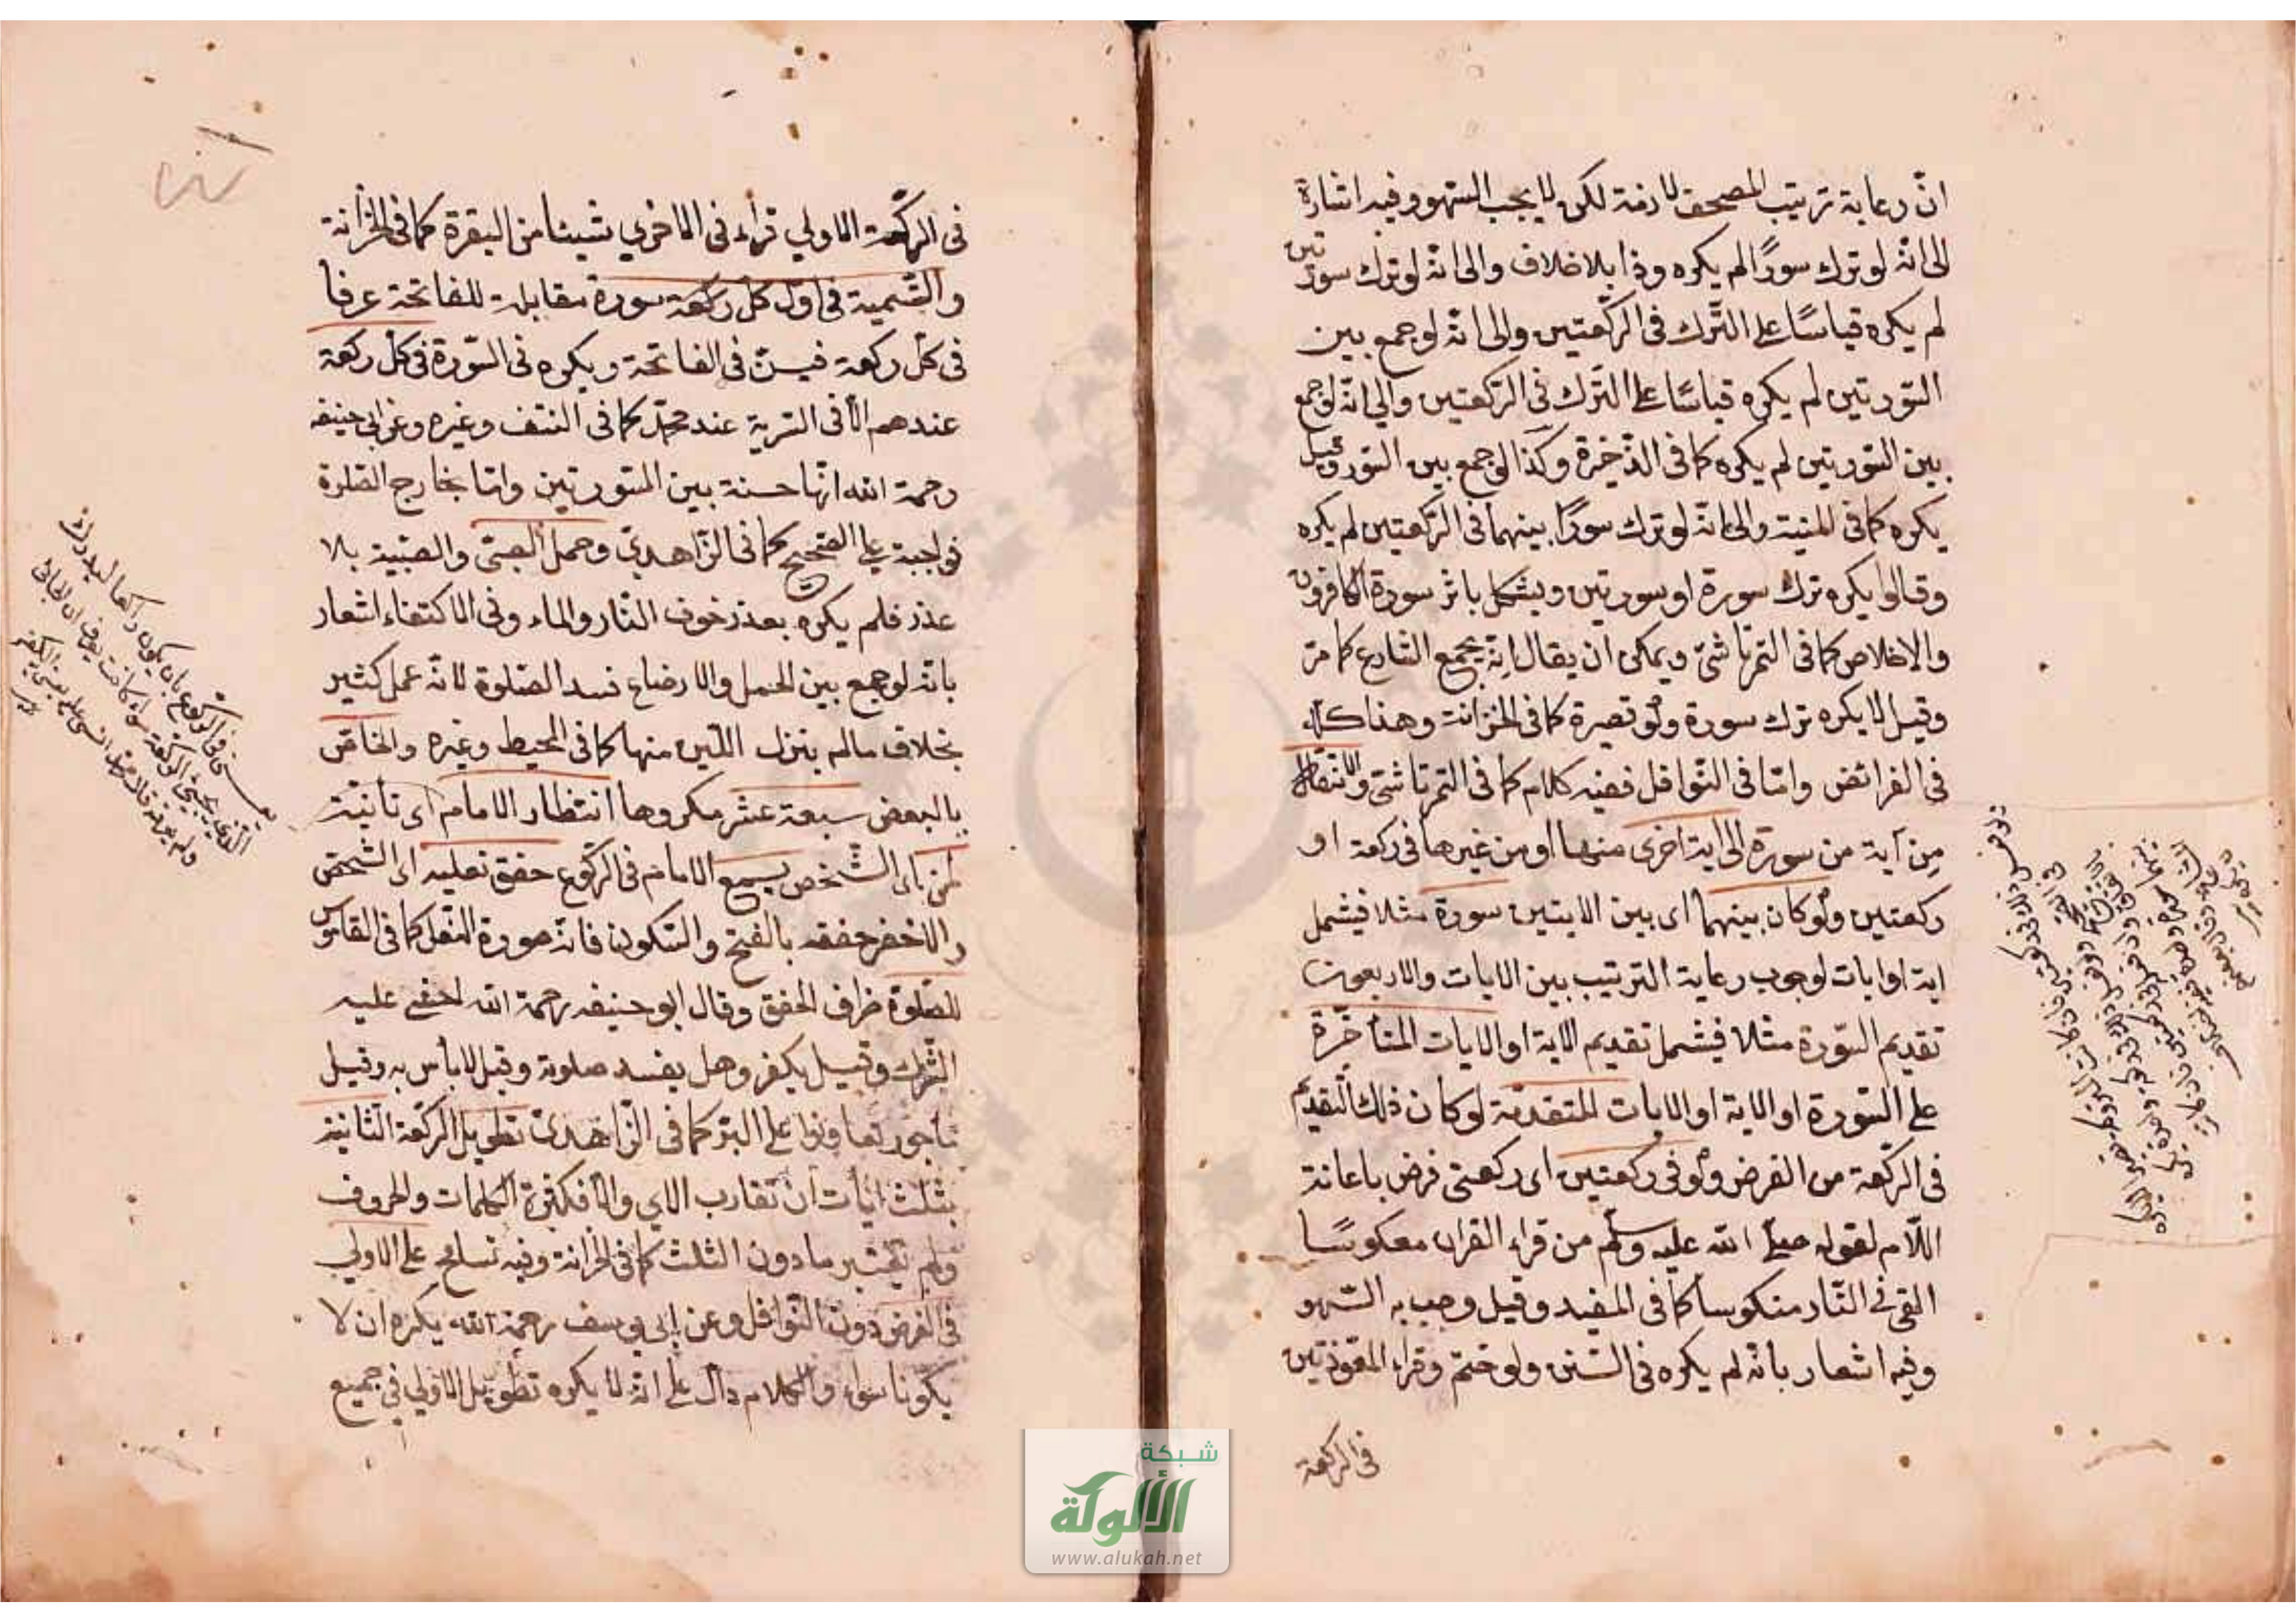 انّ رعاية ترتيب المصحف لازمة لكن لا يجب السّهو وفيه اشارة
الى انّه لو ترك سورًا لم يكره وذا بلا خلاف والى انّه لو ترك سورتين
لم يكره قياسًا على التّرك في الرّكعتين والى انّه لو جمع بين
السّورتين لم يكره قياسًا على التّرك في الرّكعتين والى انّه لو جمع
بين السّورتين لم يكره كما في الذّخيرة وكذا لو جمع بين السّور وقيل
يكره كما في المنية والى انّه لو ترك سورًا بينهما في الرّكعتين لم يكره
وقالوا يكره ترك سورة او سورتين ويشكل باثر سورة الكافرون
والاخلاص كما في التمرتاشيّ ويمكن ان يقال انّه بجمع الشارع كما مرّ
وقيل لا يكره ترك سورة ولو قصيرة كما في الخزانة وهذا كلّه
في الفرائض وامّا في النّوافل ففيه كلام كما في التمرتاشيّ والانتقال
من آية من سورة الى اية اخرى منها او من غيرها في ركعة او
ركعتين ولو كان بينهما اى بين الايتين سورة مثلا فيشمل
اية او ايات لوجوب رعاية الترتيب بين الايات والاربعون
تقديم السّورة مثلا فيشمل تقديم الاية او الايات المتأخّرة
على السّورة او الاية او الايات المتقدّمة لو كان ذلك التقديم
في الرّكعة من الفرض ولو في ركعتين اى ركعتى فرض باعانة
اللّام لقوله صلّى الله عليه وسلّم من قراء القران معكوسًا
القى فى النّار منكوسا كما في المفيد وقيل وجب به السّهو
وفيه اشعار بانّه لم يكره في السّنن ولو ختم وقراء المعوّذتين
في الركعة
في الرّكعة الاولي قراء في الاخري شيئا من البقرة كما في الخزانة
والتّسمية في اوّل كلّ ركعة سورة مقابلة للفاتحة عرفا
في كلّ ركعة فيسنّ في الفاتحة ويكره في السّورة في كلّ ركعة
عندهم الّا في السّرية عند محمّد كما في النتف وغيره وعن ابي حنيفه
رحمة الله انّها حسنة بين السّورتين وامّا بخارج الصّلوة
فواجبة على الصّحيح كما في الزّاهديّ وحمل الصبىّ والصّبيّة بلا
عذر فلم يكره بعذر خوف النّار والماء وفي الاكتفاء اشعار
بانّه لو جمع بين الحمل والارضاع فسد الصّلوة لانّه عمل كثير
بخلاف مالم ينزل اللّبن منها كما في المحيط وغيره والخاصّ
بالبعض سبعة عشر مكروها انتظار الامام اى تأنيّه
لمن باى الشّخص يسمع الامام في الرّكوع خفق نعليه اى الشّخص
والاخضر خفقه بالفتح والسّكون فانّه صورة النّعل كما في القاموس
للصّلوة ظرف الخفق وقال ابو حنيفه رحمة الله اخشى عليه
الشّرك وقيل يكفر وهل يفسد صلوته وقيل لا باس به وقيل
مأجور تعاونوا على البرّ كما في الزّاهديّ تطويل الرّكعة الثّانية
بثلث ايات ان تقارب الاى والّا فكثرة الكلمات والحروف
ولم يعتبر ما دون الثلث كما في الخزانة وفيه تسامح على الاولي
في الفرض دون النّوافل وعن ابي يوسف رحمة الله يكره ان لا
يكونا سواء والكلام دالّ على انّه لا يكره تطويل الاولي في جميع
شبكة
الألوكة
www.alukah.net